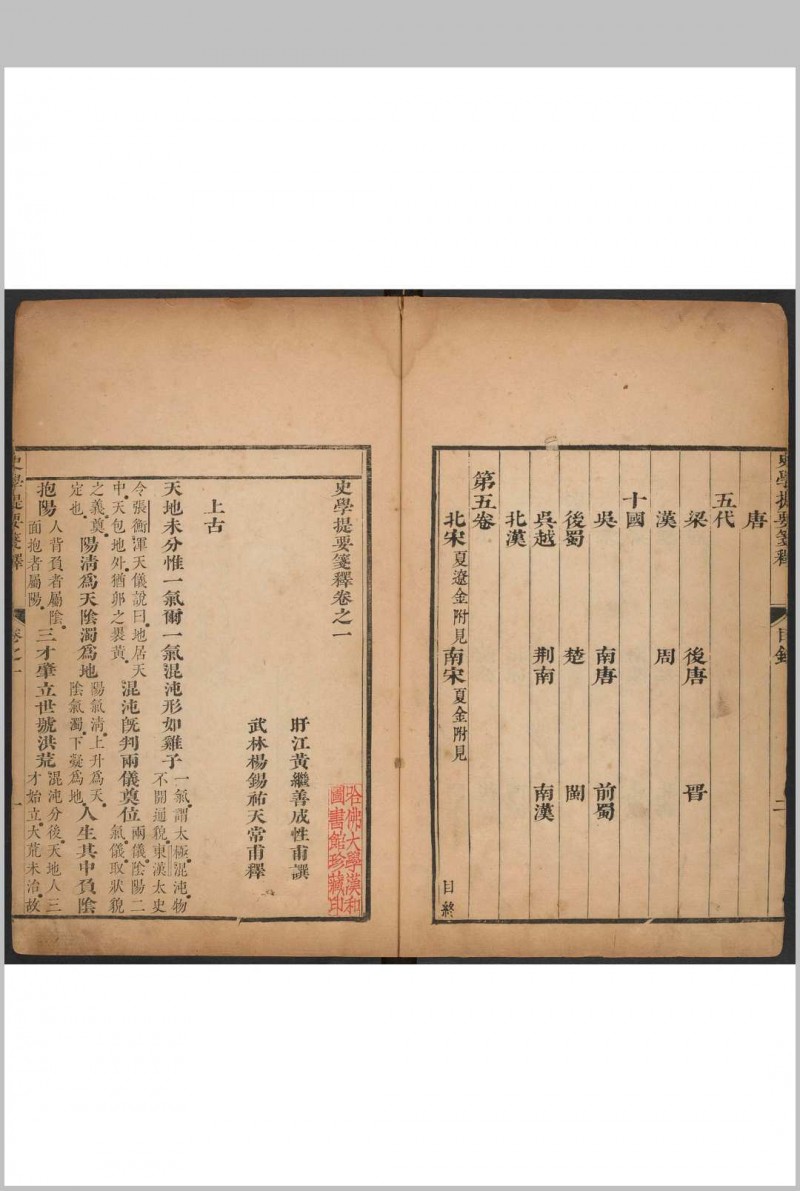 史學提要箋釋
目錄
二
唐
五代
梁 後唐 晋
漢 周
十國
吳 南唐 前蜀
後蜀 楚 閩
吳越 荆南 南漢
北漢
第五卷
北宋夏遼金附見南宋夏金附見
目終
史學提要箋釋卷之一
哈佛大學漢和
圖書館珍藏印
盱江黃繼善成性甫譔
武林楊錫祐天常甫釋
上古
天地未分惟一氣爾一氣混沌形如雞子
一氣謂太極混沌物
不開通貌東漢太史
令張衡渾天儀說曰地居天
中天包地外猶卵之褁黃
混沌旣判兩儀奠位
兩儀陰陽二
氣儀取狀貌
之義奠
定也
陽清爲天陰濁爲地
陽氣清上升爲天
陰氣濁下凝爲地
人生其中負陰
抱陽
人背負者屬陰
面抱者屬陽
三才肇立世號洪荒
混沌分後天地人三
才始立大荒未治故
史學提要箋釋
卷之一
一